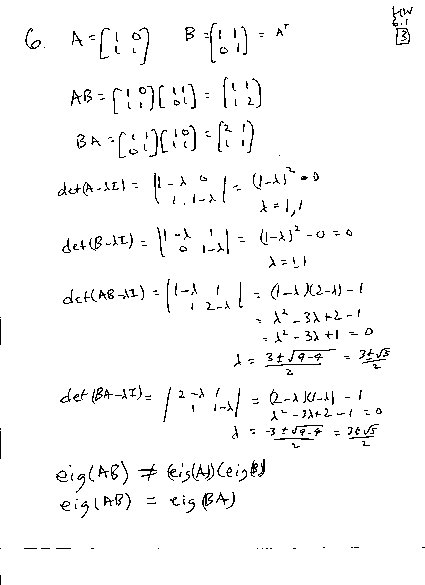 HW
6.1
3
6. A = [1 0; 1 1] B = [1 1; 0 1] = Aᵀ
AB = [1 0; 1 1][1 1; 0 1] = [1 1; 1 2]
BA = [1 1; 0 1][1 0; 1 1] = [2 1; 1 1]
det(A-λI) = |1-λ 0; 1 1-λ| = (1-λ)² = 0
λ = 1, 1
det(B-λI) = |1-λ 1; 0 1-λ| = (1-λ)² - 0 = 0
λ = 1, 1
det(AB-λI) = |1-λ 1; 1 2-λ| = (1-λ)(2-λ) - 1
= λ² - 3λ + 2 - 1
= λ² - 3λ + 1 = 0
λ = (3 ± √9-4)/2 = (3 ± √5)/2
det(BA-λI) = |2-λ 1; 1 1-λ| = (2-λ)(1-λ) - 1
λ² - 3λ + 2 - 1 = 0
λ = (3 ± √9-4)/2 = (3 ± √5)/2
eig(AB) ≠ (eig(A))(eig(B))
eig(AB) = eig(BA)